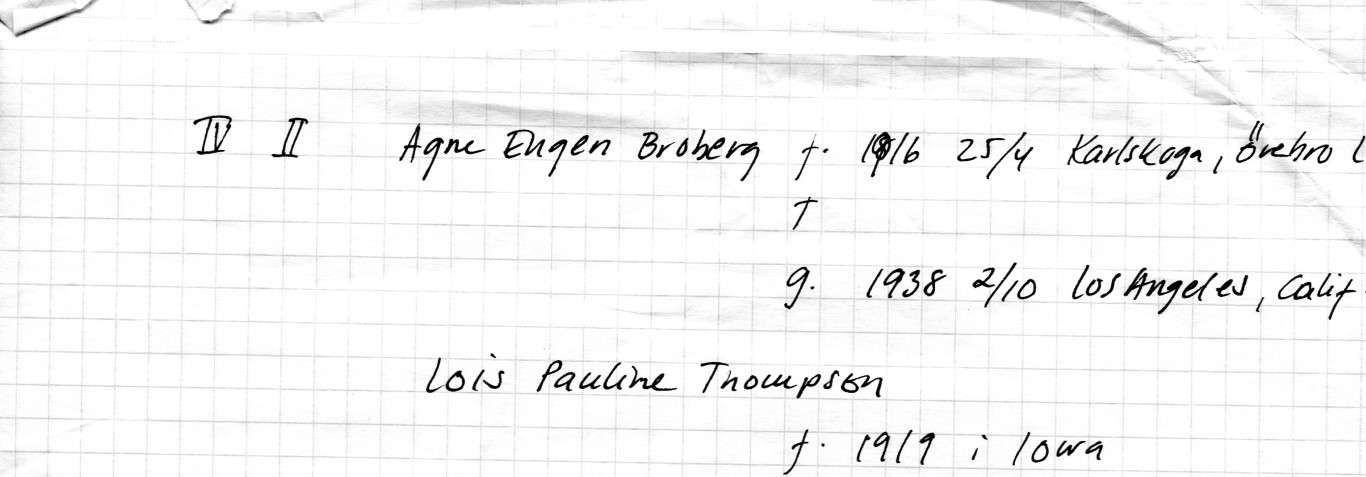 IV II Agne Eugen Broberg f. 1916 25/4 Karlskoga, Örebro L
†
g. 1938 2/10 Los Angeles, Calif.
Lois Pauline Thompson
f. 1919 i Iowa